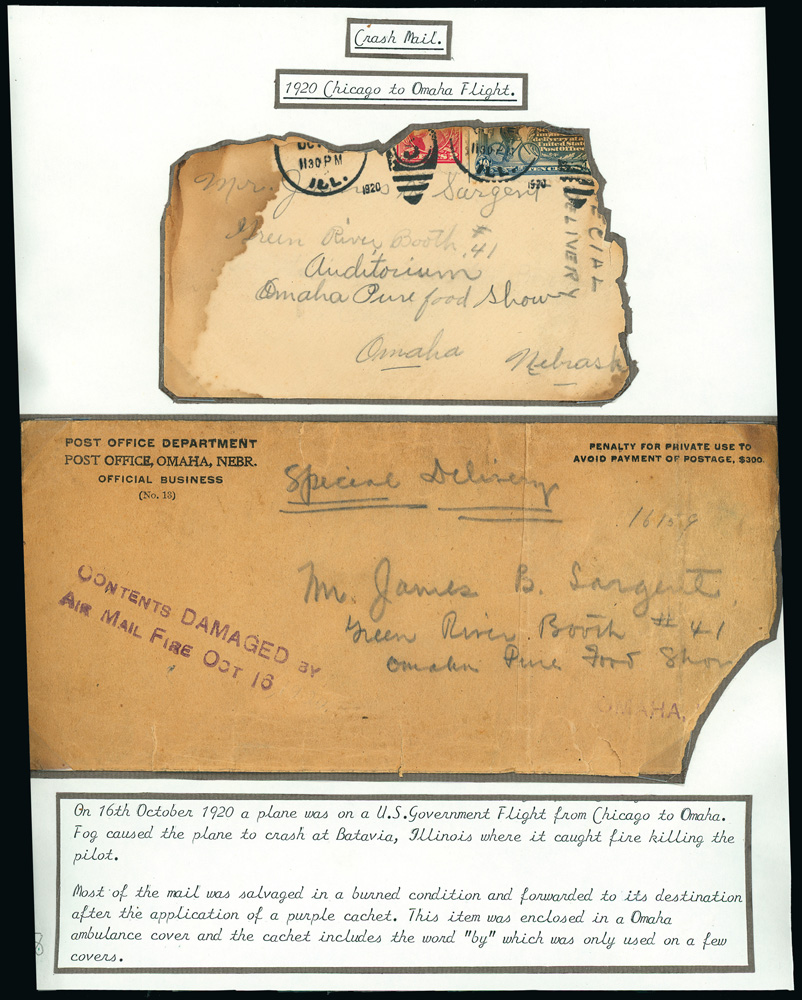 Crash Mail.
1920 Chicago to Omaha Flight.
1130 PM
ILL.
1920
1130 PM
ILL.
1920
delivery at a
United States
Post Office
Mr. J Sargent
Green River Booth # 41
Auditorium
Omaha Pure food Show
Omaha Nebrask
ECIAL
ELIVERY
POST OFFICE DEPARTMENT
POST OFFICE, OMAHA, NEBR.
OFFICIAL BUSINESS
(No. 13)
PENALTY FOR PRIVATE USE TO
AVOID PAYMENT OF POSTAGE, $300.
Special Delivery
Mr. James B. Sargent,
Green River Booth # 41
Omaha Pure Food Show
OMAHA,
CONTENTS DAMAGED BY
AIR MAIL FIRE OCT 16
On 16th October 1920 a plane was on a U.S.Government Flight from Chicago to Omaha.
Fog caused the plane to crash at Batavia, Illinois where it caught fire killing the
pilot.
Most of the mail was salvaged in a burned condition and forwarded to its destination
after the application of a purple cachet. This item was enclosed in a Omaha
ambulance cover and the cachet includes the word "by" which was only used on a few
covers.